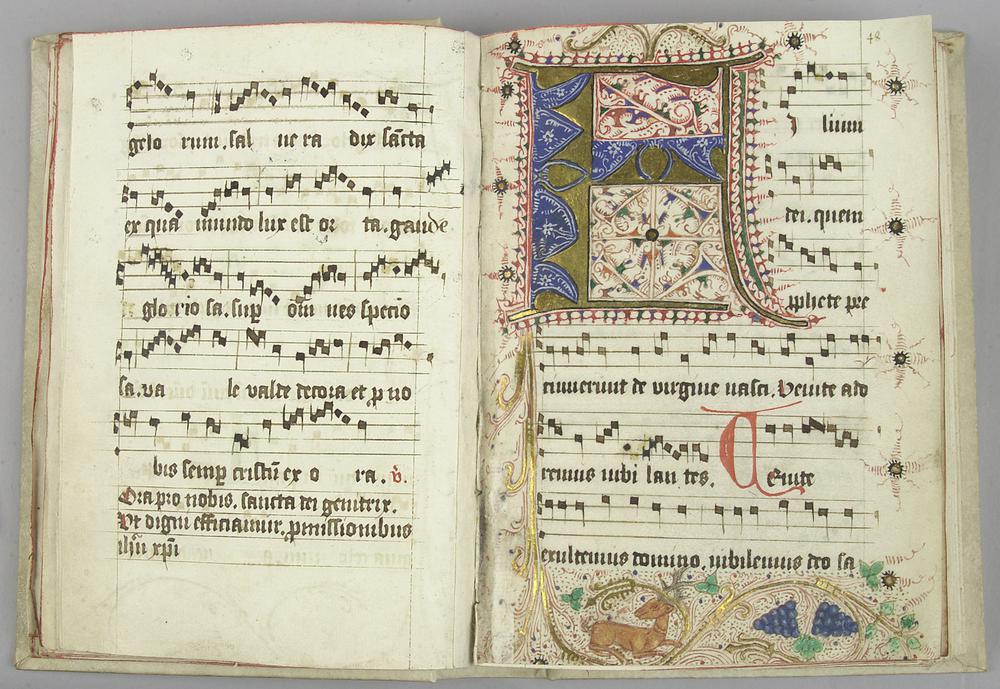 gelo rum. sal ue ra dix sācta
ex qua mundo lux est or ta. gaude
glo rio sa. sup om nes specio
sa. va le valde decora et p no
bis semp cristū ex o ra. v̄.
Ora pro nobis. sancta dei genitrix.
Vt digni efficiamur. pmissionibus
ihū xpi
48
lium
dei. quem
pphete pre
cinuerunt de virgine nasci. Venite ado
remus iubi lan tes. Venite
exultemus domino. iubilemus deo sa